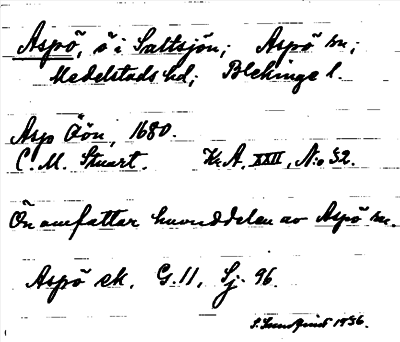 Aspö, ö i Saltsjön; Aspö sn;
Medelstads hd; Blekinge l.
Asp Öön, 1680.
C. M. Stuart. Kr.A. XXII, N:o 32.
Ön omfattar huvuddelen av Aspö sn.
Aspö ek. G.11, Sj. 96.
S. Sundqvist 1936.